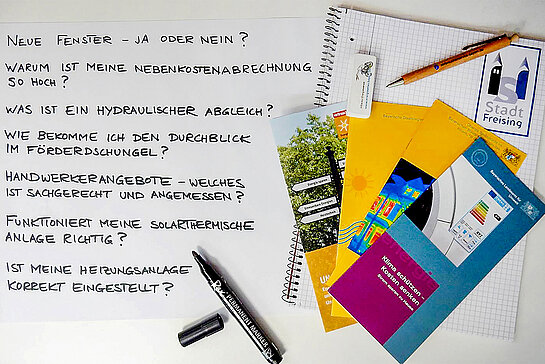 NEUE FENSTER – JA ODER NEIN?
WARUM IST MEINE NEBENKOSTENABRECHNUNG
SO HOCH?
WAS IST EIN HYDRAULISCHER ABGLEICH?
WIE BEKOMME ICH DEN DURCHBLICK
IM FÖRDERDSCHUNGEL?
HANDWERKERANGEBOTE – WELCHES
IST SACHGERECHT UND ANGEMESSEN?
FUNKTIONIERT MEINE SOLARTHERMISCHE
ANLAGE RICHTIG?
IST MEINE HEIZUNGSANLAGE
KORREKT EINGESTELLT?
PERMANENT MARKER
Stadt
Freising
Klima schützen –
Kosten senken